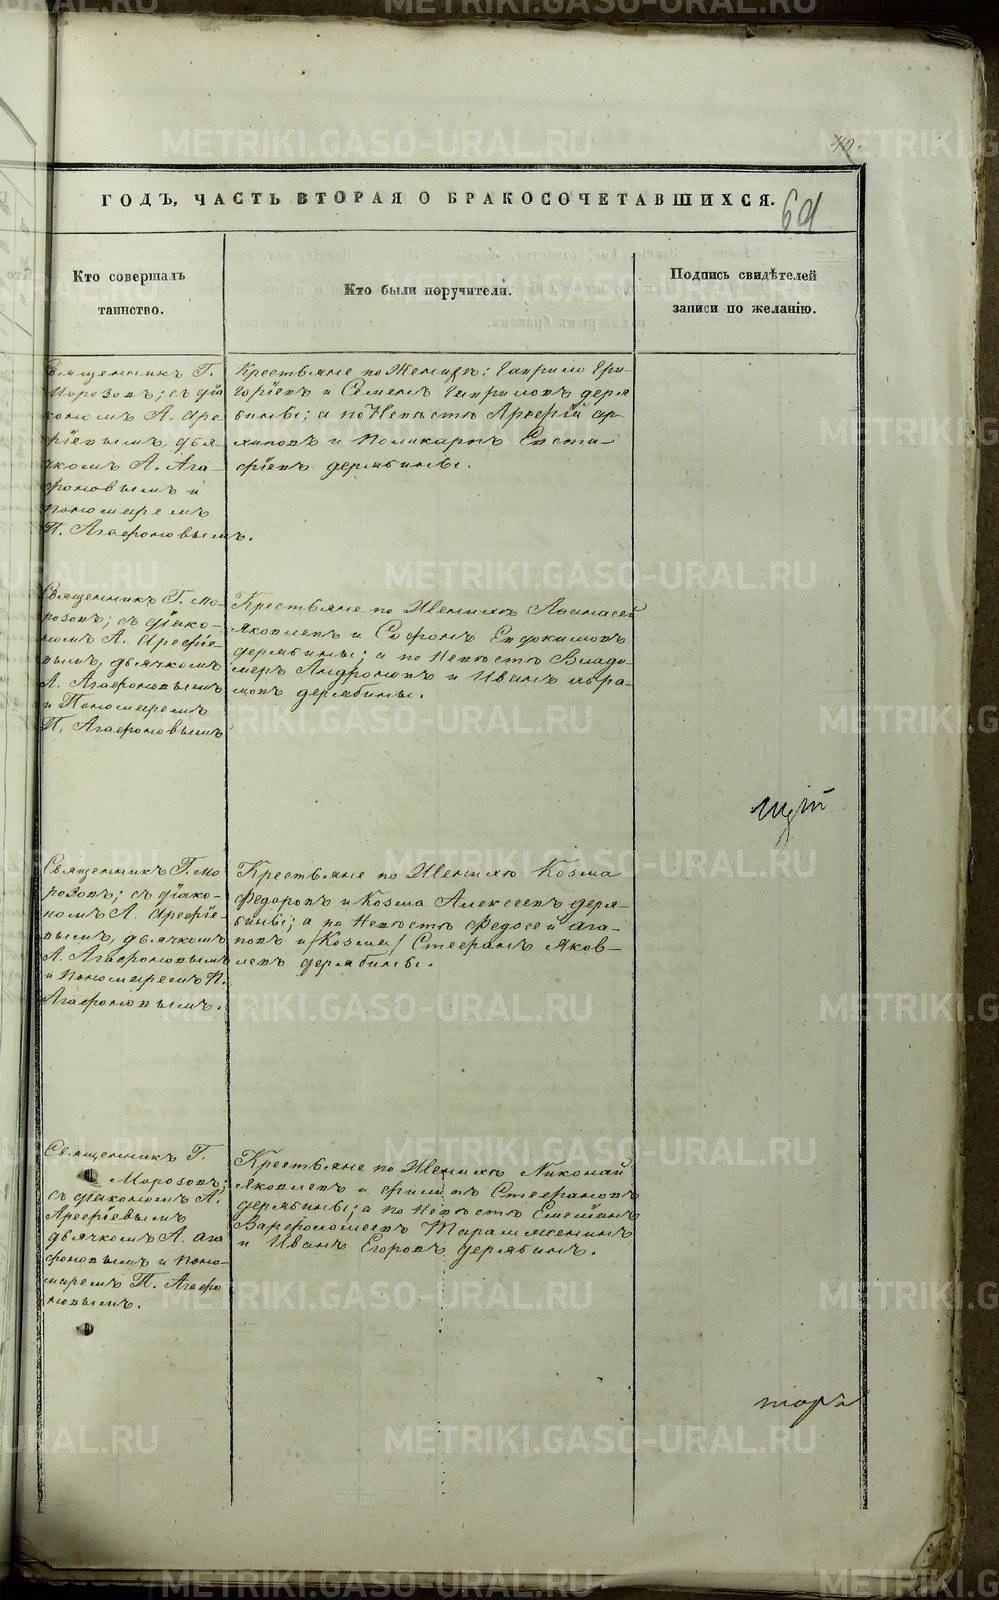 40.
ГОДЪ, ЧАСТЬ ВТОРАЯ О БРАКОСОЧЕТАВШИХСЯ.
Кто совершалъ
таинство.
Кто были поручители.
Подпись свидѣтелей
записи по желанію.
Священникъ Г.
Морозовъ; съ діа
кономъ А. Аре
фіевымъ, дья
чкомъ А. Ага-
фоновымъ и
пономаремъ
П. Агафоновымъ.
Крестьяне по Женихѣ: Гаврило Гри-
горіевъ и Семенъ Гавриловъ деря
бины; а по Невѣстѣ Арефій ар
хиповъ и Поликарпъ Евста-
фіевъ дерябины.
Священникъ Г. Мо-
розовъ; съ діако-
номъ А. Арефіе-
вымъ, дьячкомъ
А. Агафоновымъ
и Пономаремъ
П. Агафоновымъ
Крестьяне по Женихѣ Афанасей
Яковлевъ и Софонъ Евдокимовъ
дерябины; а по Невѣстѣ Влади
меръ Андроновъ и Иванъ абра-
мовъ дерябины.
Священникъ Г. Мо
розовъ; съ діако-
номъ А. Арефіе-
вымъ, дьячкомъ
А. Агафоновымъ
и Пономаремъ П.
Агафоновымъ.
Крестьяне по Женихѣ Козма
Федоровъ и Козма Алексеевъ деря-
бины; а по Невѣстѣ Федосей ага-
повъ и /Козма/ Стефанъ Яков-
левъ дерябины.
Священникъ Г.
Морозовъ;
съ діакономъ А.
Арефіевымъ
дьячкомъ А. ага
фоновымъ и поно-
маремъ П. Агафо
новымъ.
Крестьяне по Женихѣ Николай
Яковлевъ и филипъ Стефановъ
дерябины; а по Невѣстѣ Емельянъ
Варфоломеевъ
и Иванъ Егоровъ дерябинъ.
METRIKI.GASO-URAL.RU